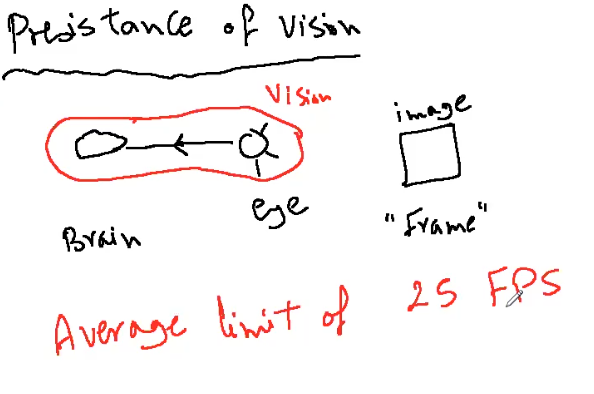 Presistance of Vision
Vision
image
eye
"Frame"
Brain
Average limit of 25 FPS